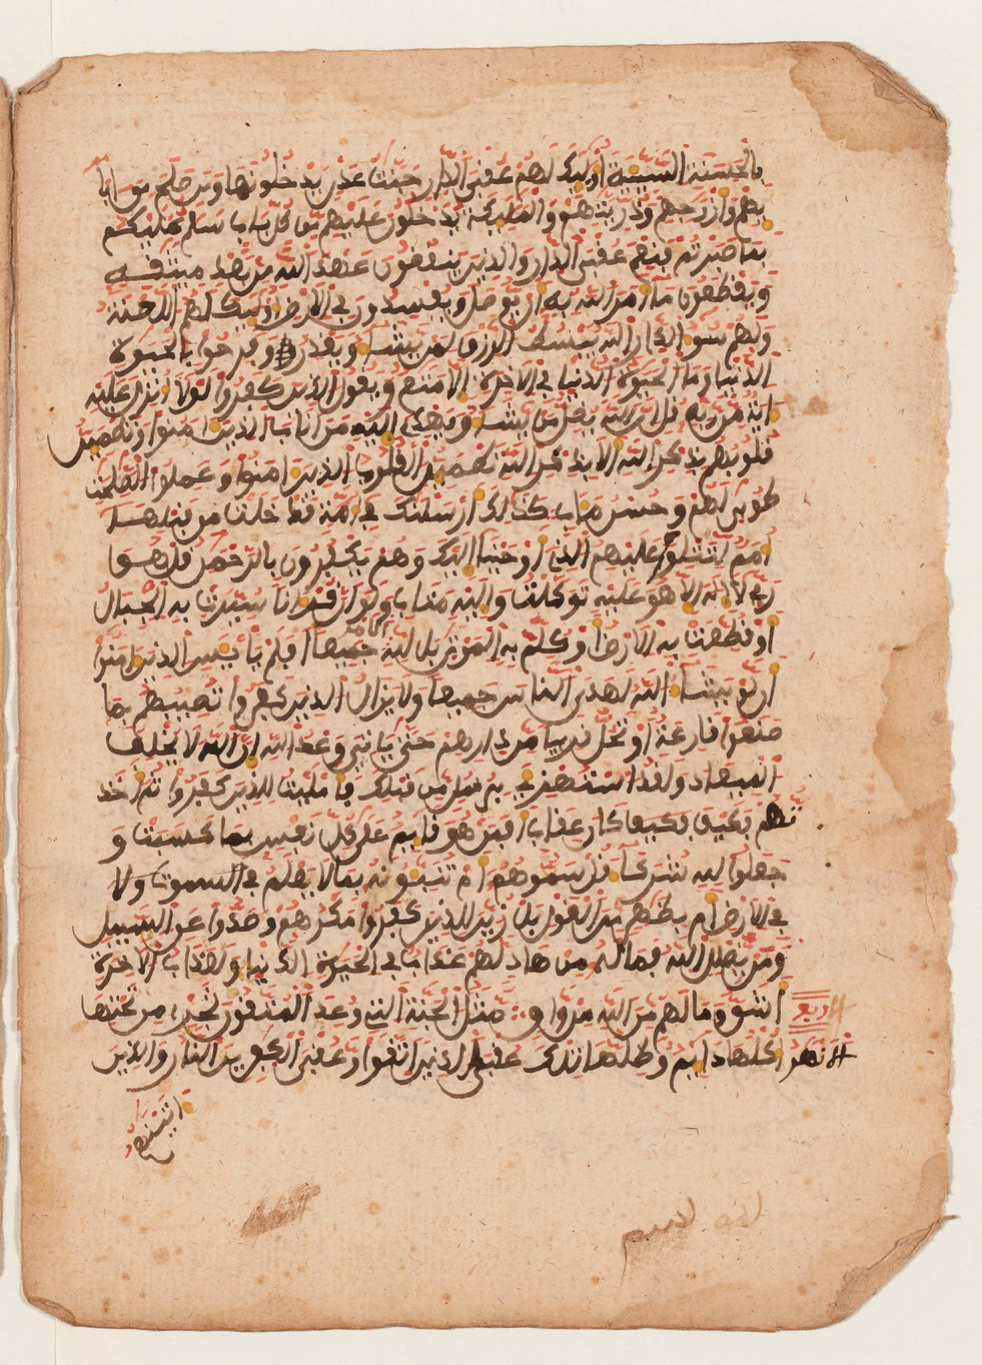 بالحسنة السيئة أوليك لهم عقبى الدار جنت عدن يدخلونها ومن صلح من ابا
يهم وازوجهم وذريتهم والمليكة يدخلون عليهم من كل باب سلم عليكم
بما صبرتم فنعم عقبى الدار والذين ينقضون عهد الله من بعد ميثقه
ويقطعون ما امر الله به ان يوصل ويفسدون في الارض أوليك لهم اللعنة
ولهم سوء الدار الله يبسط الرزق لمن يشاء ويقدر وفرحوا بالحيوة
الدنيا وما الحيوة الدنيا في الاخرة الا متع ويقول الذين كفروا لولا انزل عليه
اية من ربه قل ان الله يضل من يشاء ويهدي اليه من اناب الذين امنوا وتطمين
قلوبهم بذكر الله الا بذكر الله تطمين القلوب الذين امنوا وعملوا الصلحت
طوبى لهم وحسن مآب كذلك ارسلنك في امة قد خلت من قبلها
امم لتتلوا عليهم الذي اوحينا اليك وهم يكفرون بالرحمن قل هو
ربي لا اله الا هو عليه توكلت واليه متاب ولو ان قرانا سيرت به الجبال
او قطعت به الارض او كلم به الموتى بل لله الامر جميعا افلم يايـس الذين امنوا
ان لو يشاء الله لهدى الناس جميعا ولا يزال الذين كفروا تصيبهم بما
صنعوا قارعة او تحل قريبا من دارهم حتى ياتي وعد الله ان الله لا يخلف
الميعاد ولقد استهزي برسل من قبلك فامليت للذين كفروا ثم اخذ
تهم فكيف كان عقاب افمن هو قايم على كل نفس بما كسبت و
جعلوا لله شركاء قل سموهم ام تنبـونه بما لا يعلم في السموت ولا
في الارض ام بظهر من القول بل زين للذين كفروا مكرهم وصدوا عن السبيل
ومن يضلل الله فما له من هاد لهم عذاب في الحيوة الدنيا ولعذاب الاخرة
اشق وما لهم من الله من واق مثل الجنة التي وعد المتقون تجري من تحتها
ربع
الانهر اكلها دايم وظلها تلك عقبى الذين اتقوا وعقبى الكفرين النار والذين
اتينهم